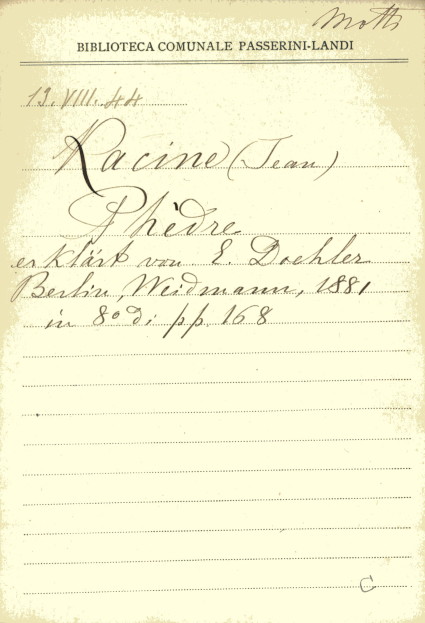 Motti
BIBLIOTECA COMUNALE PASSERINI-LANDI
13.VIII.44
Racine (Jean)
Phèdre
erklärt von E. Doehler
Berlin, Weidmann, 1881
in 8° di pp. 168
C